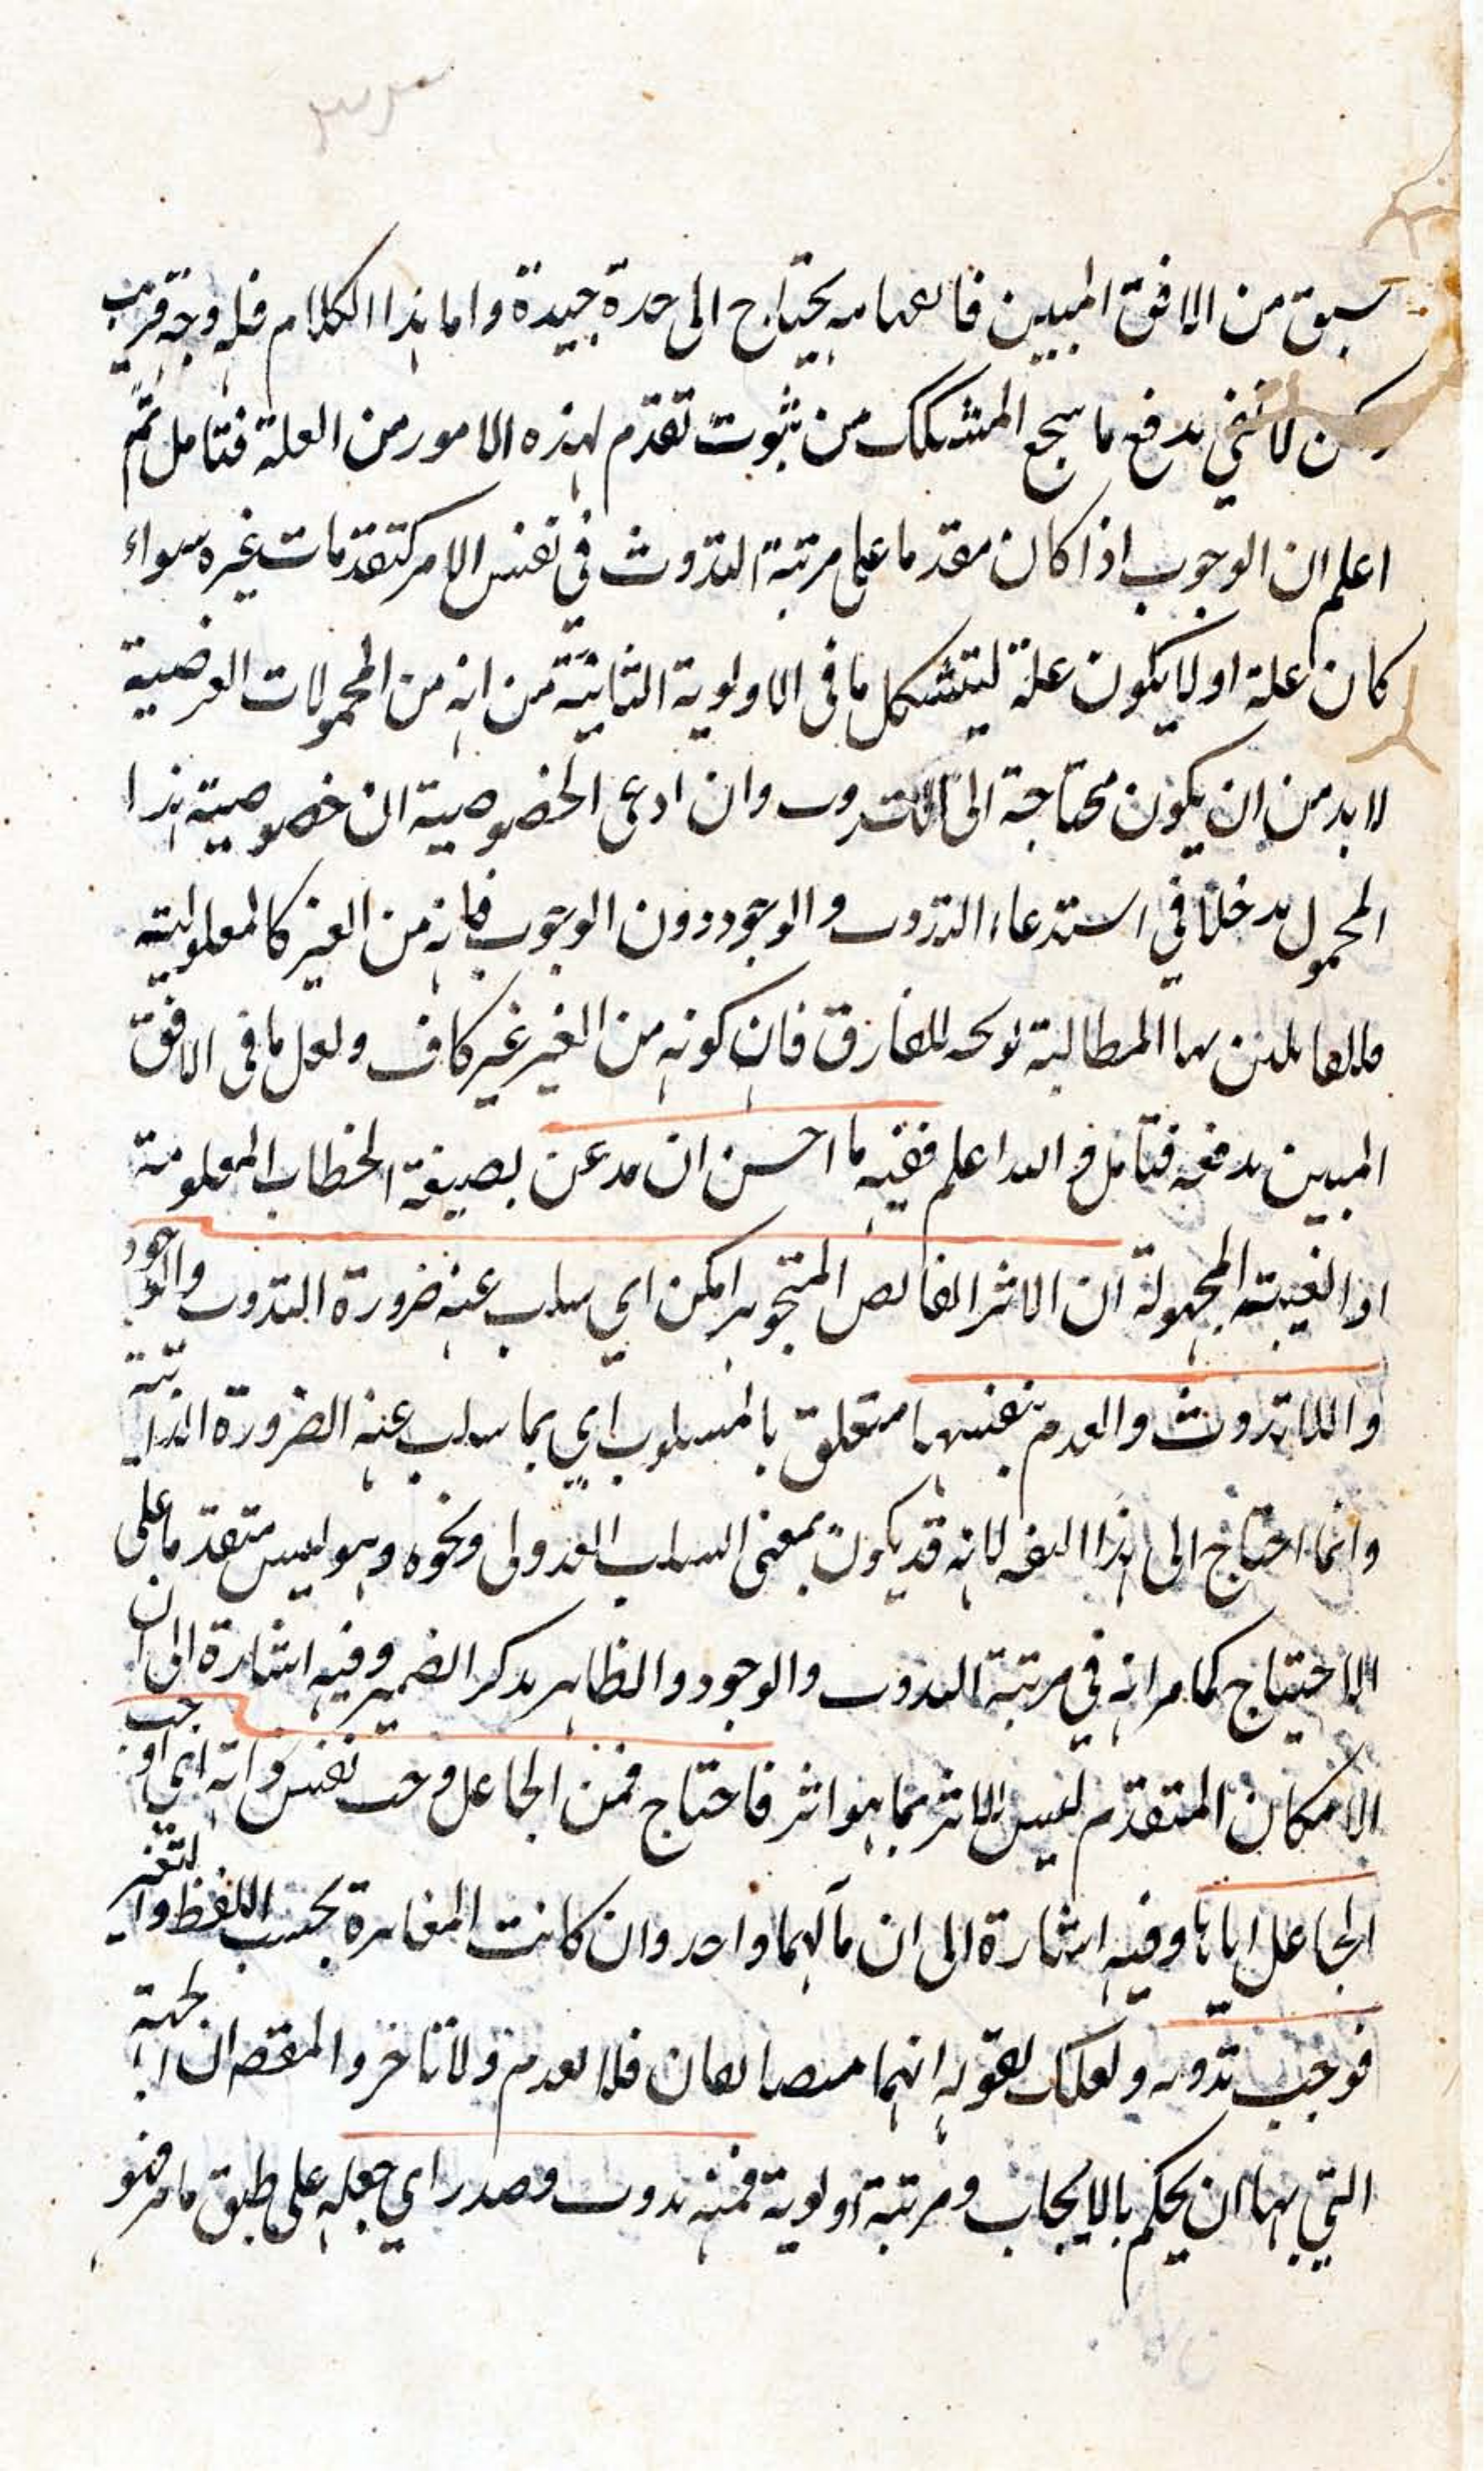 سبق من الافق المبين فا يحتاج الى حدة جيدة واما هذا الكلام فله وجه قريب
لكن لا يفي بدفع ما سجع المتشكك من ثبوت تقدم لهذه الامور من العلة فتامل ثم
اعلم ان الوجوب اذا كان مقدما على مرتبة التذوت في نفس الامر كتقدمات غيره سواء
كان علة او لا يكون علة ليتشكل ما في الاولوية الثانية من انه من المحمولات العرضية
لا بد من ان يكون محتاجة الى التذوت وان ادعى الخصوصية ان خصوصية هذا
المحمول مدخلا في استدعاء التذوت والوجود دون الوجوب فانه من الغير كالمعلولية
المطالبة للفارق فان كونه من الغير غير كاف ولعل ما في الافق
المبين يدفعه فتامل والله اعلم ففيه ما احسن ان تذعن بصيغة الخطاب المعلومة
او الغيبة المجهولة ان الاثر الفائض المتجوهر امكن اي سلب عنه ضرورة التذوت والوجود
واللاتذوت والعدم بنفسها متعلق بالمسلوب اي بما سلب عنه الضرورة الذاتية
وانما احتاج الى هذا لانه قد يكون بمعنى السلب العدولى ونحوه وهو ليس متقدما على
الاحتياج كما مر انه في مرتبة التذوت والوجود والظاهر تذكر الضمير وفيه اشارة الى ان
الامكان المتقدم ليس الاثر بما هو اثر فاحتاج فمن الجاعل وجب نفس ذاته اي اوجب
الجاعل اياها وفيه اشارة الى ان مآلهما واحد وان كانت المغايرة بحسب اللفظ والتغير
فوجب تذوته ولعلك بقوله انهما متصا فلا تقدم ولا تاخر والمقصـ ان الجهة
التي بها ان يحكم بالايجاب ومرتبة اولوية فمنه تذوت وصدر اي جعله على طبق ما مر فهو